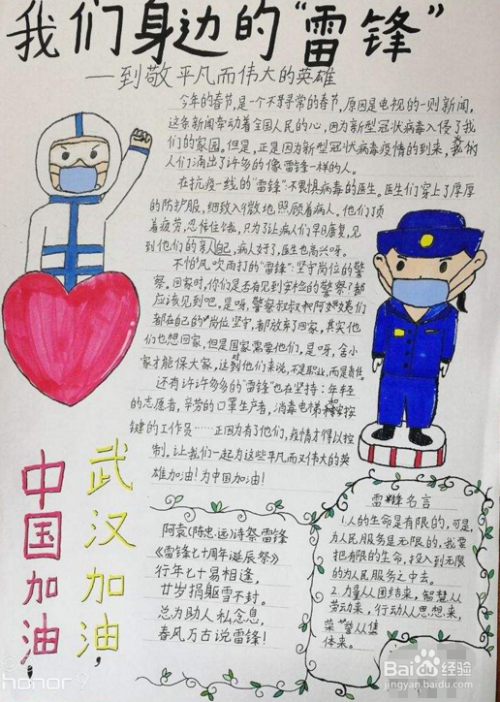 我们身边的“雷锋”
——到敬平凡而伟大的英雄
今年的春节,是一个不寻常的春节,原因是电视的一则新闻,
这条新闻牵动着全国人民的心,因为新型冠状病毒入侵了我
们的家园。但是,正是因为新型冠状病毒疫情的到来,我们
人们涌出了许多的像雷锋一样的人。
在抗疫一线的“雷锋”:不畏惧病毒的医生,医生们穿上了厚厚
的防护服,细致入微地照顾着病人,他们顶
着疲劳,忍住饥饿,只为了让病人们早日康复,见
到他们的亲人,病人好了,医生也高兴呀。
不怕风吹雨打的“雷锋”:坚守岗位的警
察。回家时,你们是否有见到安检的警察?都
应该见到吧。是呀,警察叔叔和阿姨们
都在自己的岗位坚守,都放弃了回家,其实他
们也想回家,但是国家需要他们,是呀,舍小
家才能保大家,这对他们来说,不是职业,而是责任。
还有许许多多的“雷锋”也在坚持:年轻
的志愿者,辛劳的口罩生产者,消毒电梯按
键的工作员……正因为有了他们,疫情才得以控
制。让我们一起为这些平凡而又伟大的英
雄加油!为中国加油!
武汉加油,
中国加油
阿袁(陈忠远)诗祭雷锋
《雷锋七十周年诞辰祭》
行年七十易相逢,
廿岁捐躯雪不封。
总为助人私念息,
春风万古说雷锋!
雷锋名言
1.人的生命是有限的,可是,
为人民服务是无限的,我要
把有限的生命,投入到无限
的为人民服务之中去。
2.力量从团结来,智慧从
劳动来,行动从思想来,
荣誉从集
体来。
honor
Baidu 经验
jingyan.baidu.com